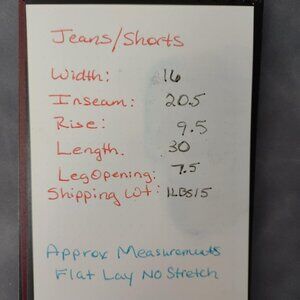 Jeans/Shorts
Width: 16
Inseam: 20.5
Rise: 9.5
Length. 30
Leg Opening: 7.5
Shipping Wt: 1LBS15
Approx Measurements
Flat Lay No Stretch